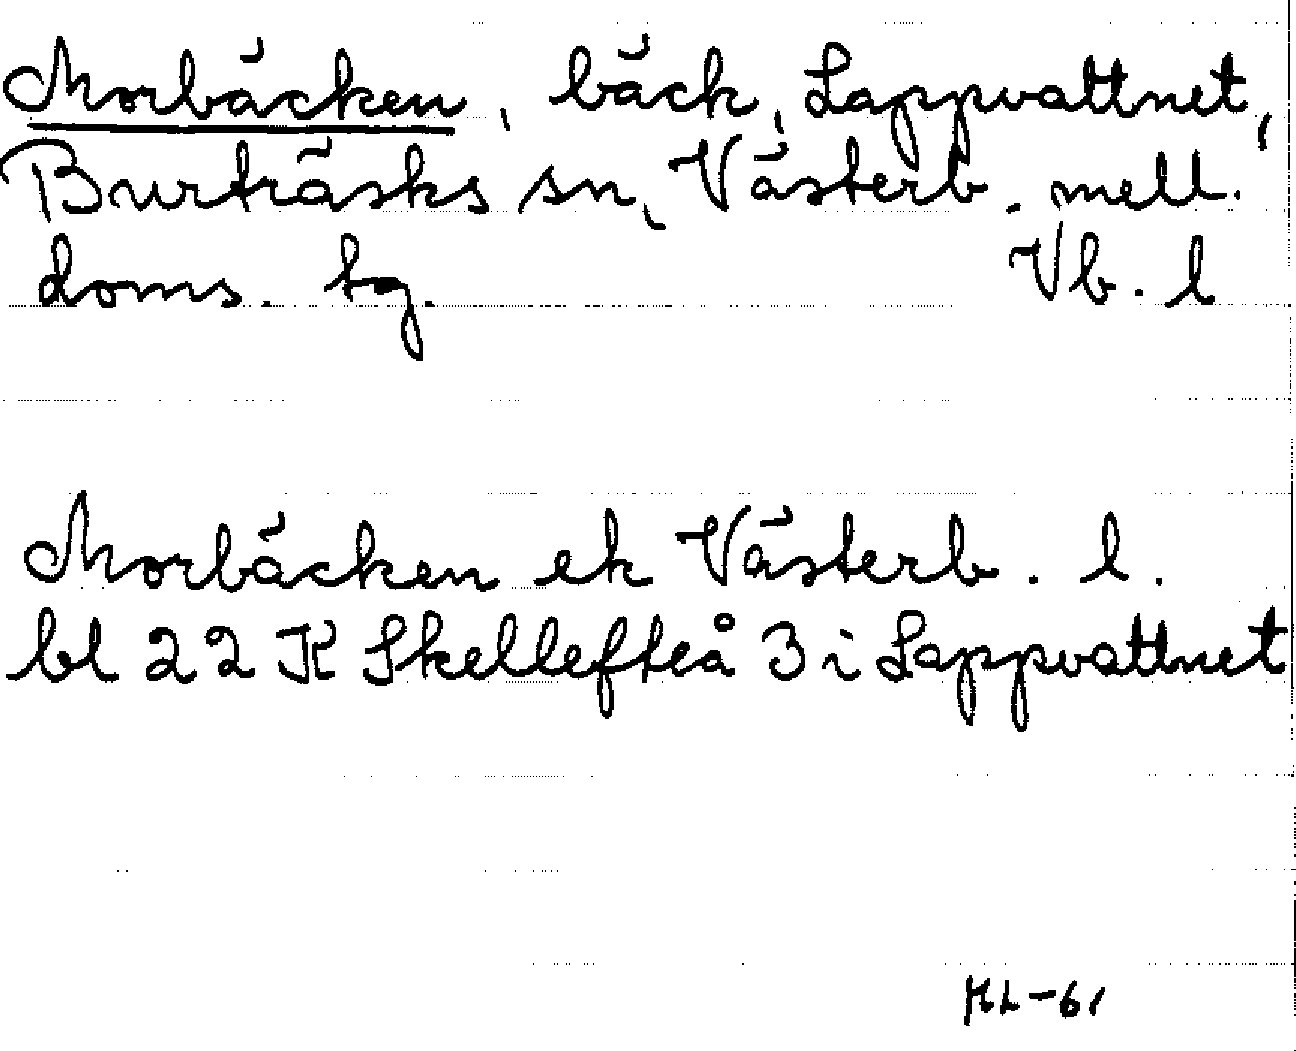 Morbäcken, bäck, Lappvattnet,
Burträsks sn, Västerb. mell.
doms. tg. Vb. l
Morbäcken ek Västerb. l.
bl 22 K Skellefteå 3 i Lappvattnet
HL-61